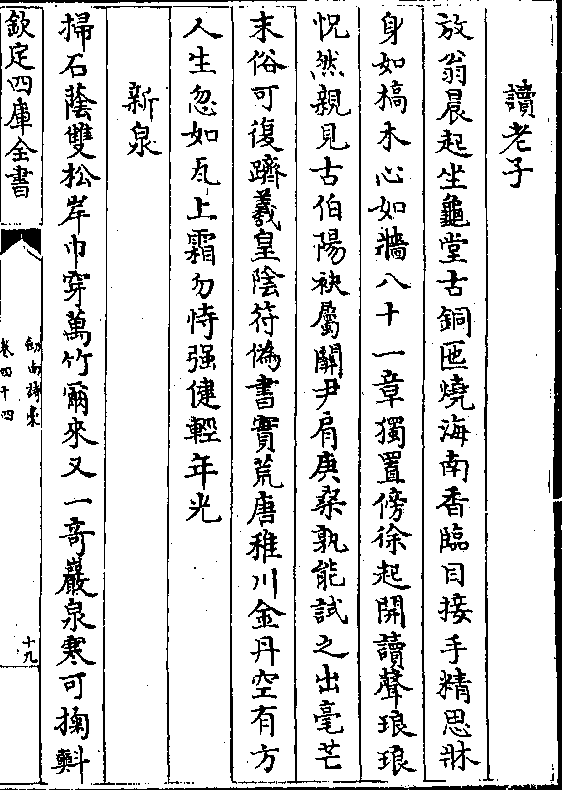 讀老子
放翁晨起坐龜堂古銅匜燒海南香臨目接手精思牀
身如槁木心如牆八十一章獨置傍徐起開讀聲琅琅
怳然親見古伯陽袂屬關尹肩庚桑孰能試之出毫芒
末俗可復躋羲皇陰符偽書實荒唐稚川金丹空有方
人生忽如瓦上霜勿恃强健輕年光
新泉
掃石蔭雙松岸巾穿萬竹爾來又一竒巖泉寒可掬㪺
欽定四庫全書
劒南詩稾
卷四十四
十九